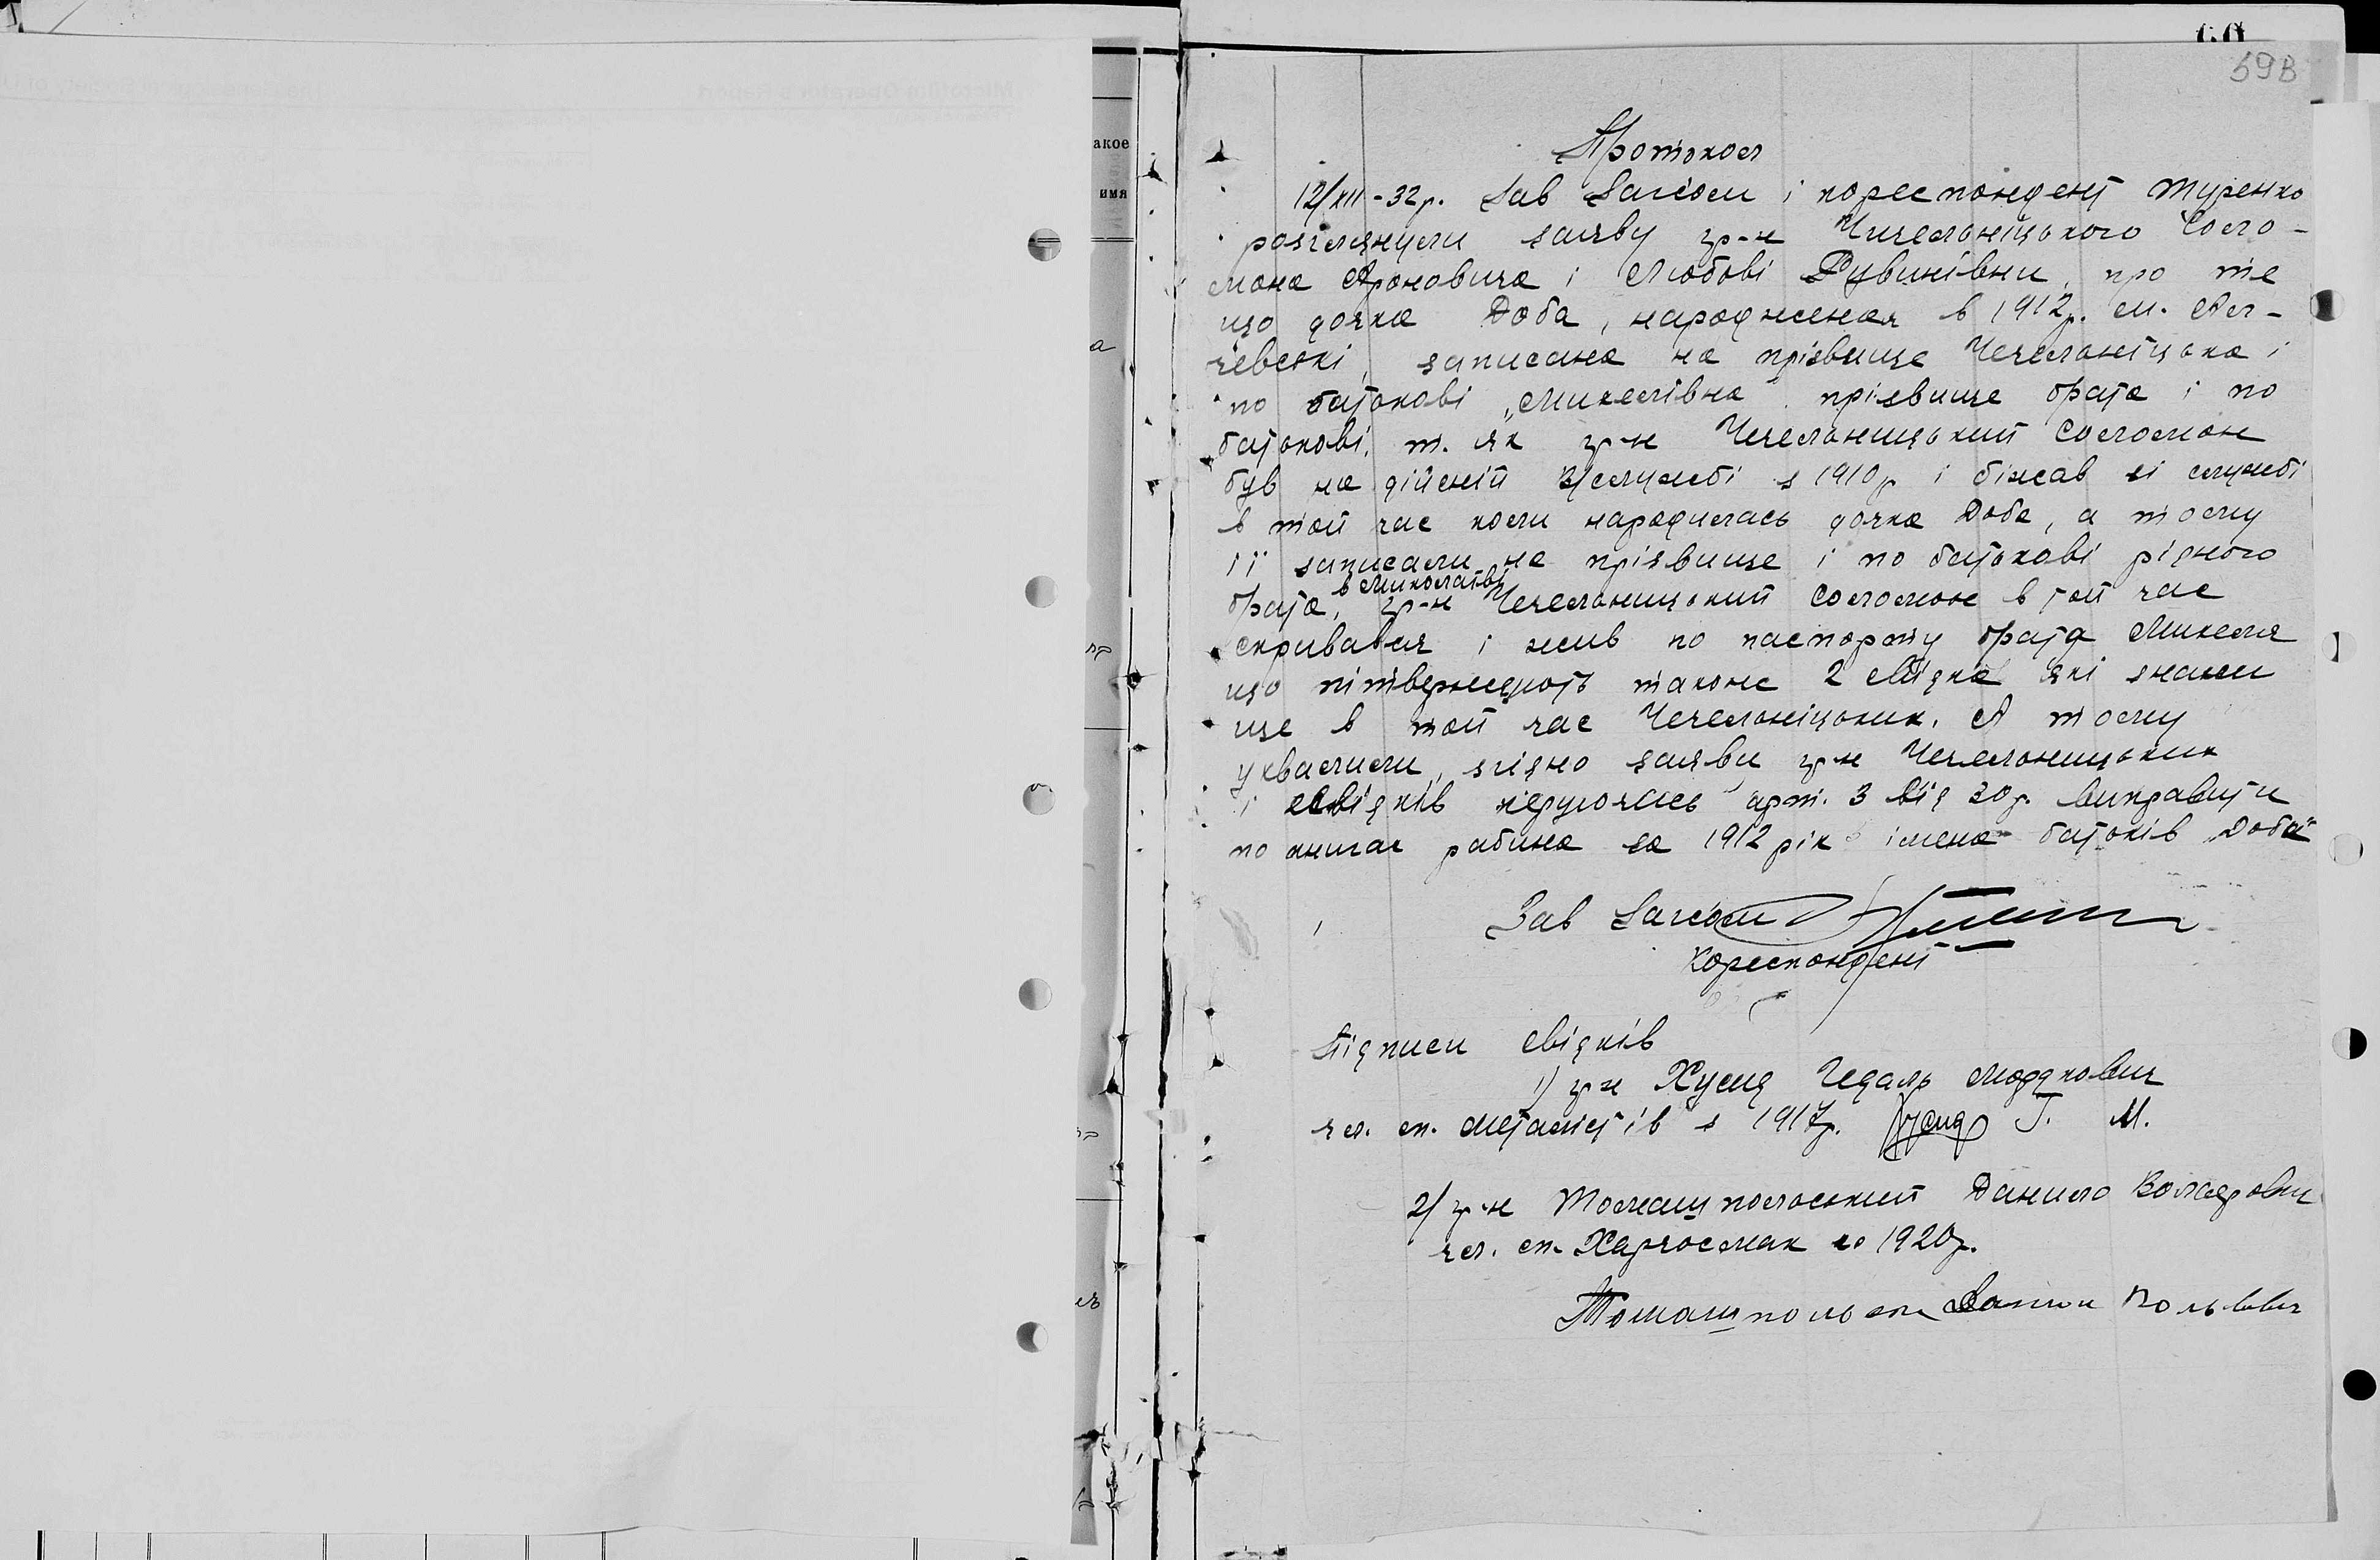 59В
акое
имя
а
Протокол
12/XII-32р. Зав Загсом і кореспондент Туренко
розглянули заяву гр-н Чичельніцького Соло-
мона Ароновича і Любові Рувинівни, про те
що дочка Доба, народженая в 1912р. м. Ал-
чевскі, записана на прізвище Чечельніцька і
по батькові „Михелівна" прізвище брата і по
батькові, т. як гр-н Чечельницький Соломон
був на дійсній в/службі з 1910р і біжав зі служби
в той час коли народилась дочка Доба, а тому
її записали на прізвище і по батькові рідного
брата, в Миколаїві
гр-н Чечельницький Соломон в той час
скривався і жив по паспорту брата Михеля
що підтверждують також 2 свідка які знали
ще в той час Чечельніцьких. А тому
ухвалили, згідно заяви гр-н Чечельницьких
і свідків керуючись арт. 3 від 30р. виправити
по книгах рабина за 1912 рік імена батьків „Доба"
Зав Загсом
Кореспондент
Підписи свідків
1) гр-н Хусид Гедаль Мордкович
чл. сп. металістів з 1917р. Хусид Г. М.
2/ гр-н Томашпольський Данило Воладрович
чл. сп. Харчосмак со 1920р.
Томашпольск Данил Вольвич